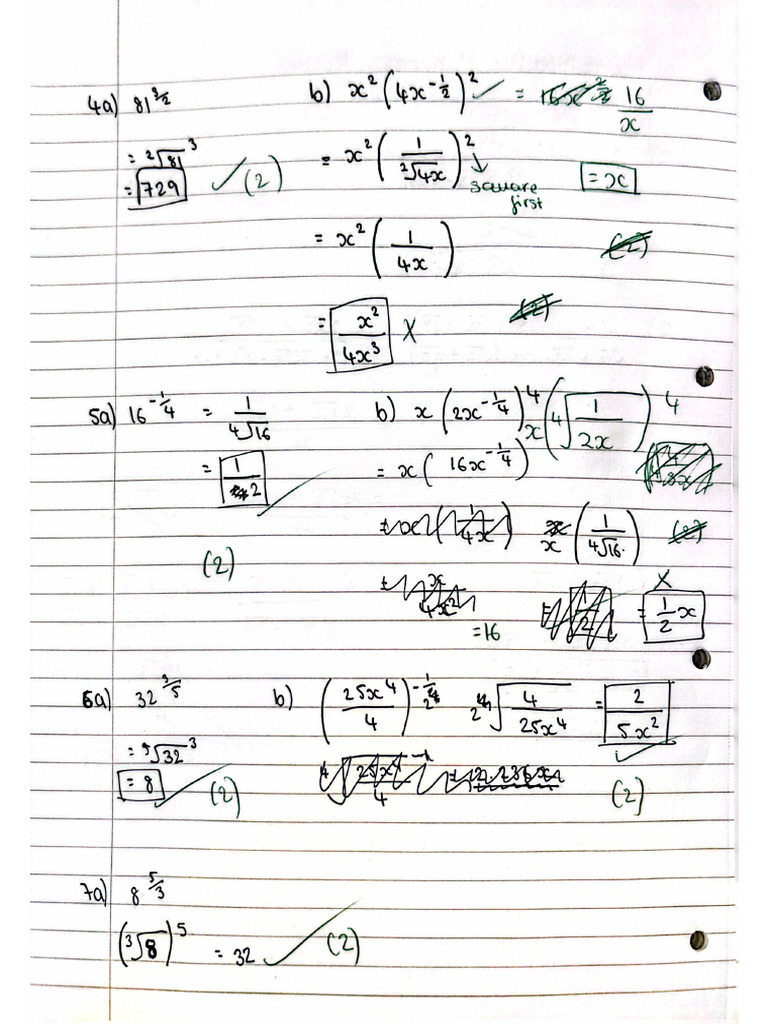 4a) 81^(3/2)
= ²√81³
= 729 ✓ (2)
b) x²(4x^(-1/2))² ✓ = 16/x
= x²(1/²√4x)² → square first
= x
= x²(1/4x)
(2)
= x²/4x³ X
(2)
5a) 16^(-1/4) = 1/⁴√16
= 1/2 ✓
(2)
b) x(2x^(-1/4))⁴ x(⁴√1/2x)⁴
= x(16x^(-1/4))
x(1/⁴√16) (2)
= 16
= 1/2 x X
6a) 32^(3/5)
= ⁵√32³
= 8 ✓ (2)
b) (25x⁴/4)^(-1/2) ²√4/25x⁴ = 2/5x² ✓
(2)
7a) 8^(5/3)
(³√8)⁵ = 32 ✓ (2)